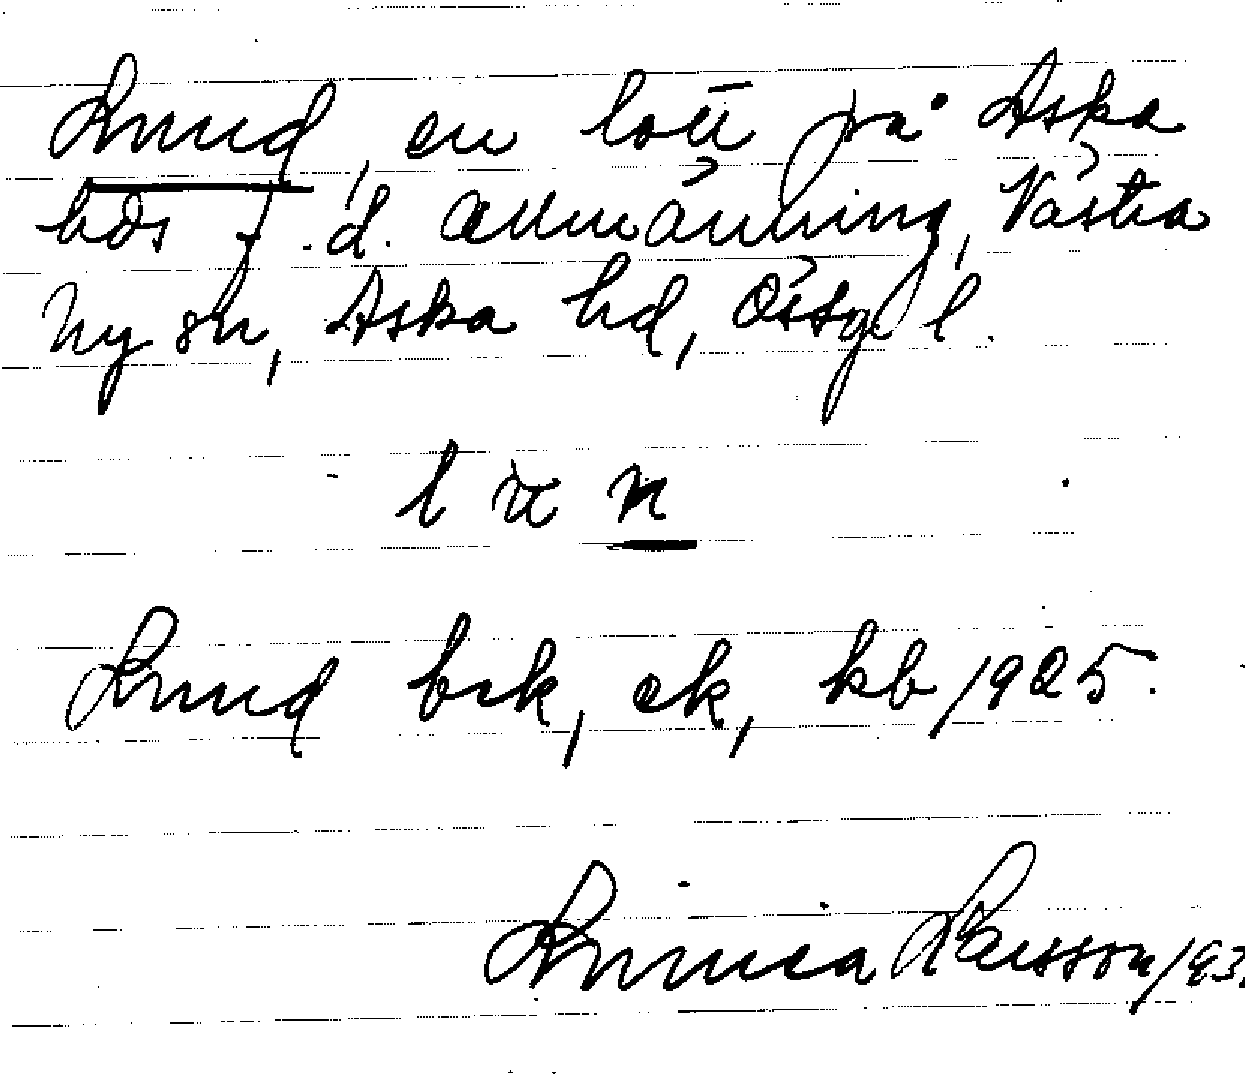 Lund, en lott på Aska
hds f.d. allmänning, Västra
Ny sn, Aska hd, Östg. l.
Lund bsk, ek, kb /1925.
Linnea Larsson /193